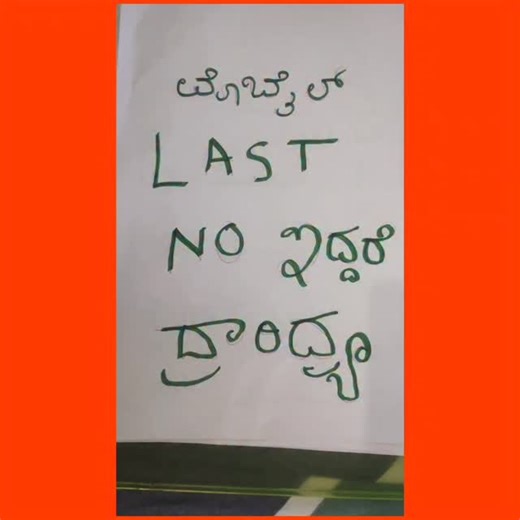 ಮೊಬೈಲ್
LAST
NO ಇದ್ದರೆ
ದ್ರಾರಿದ್ರ್ಯ